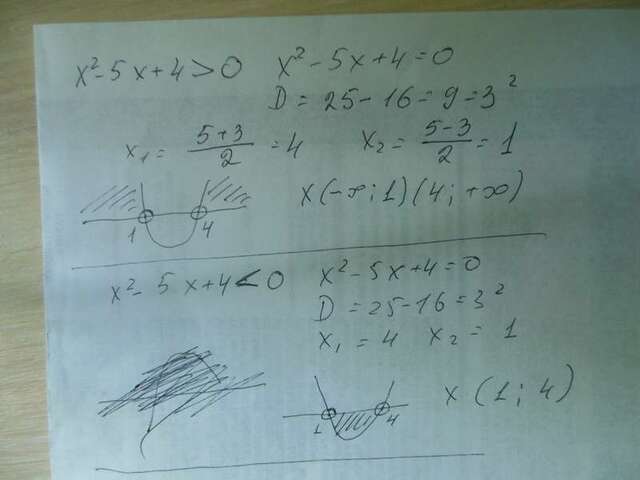 x² - 5x + 4 > 0    x² - 5x + 4 = 0
D = 25 - 16 = 9 = 3²
x₁ = (5+3)/2 = 4    x₂ = (5-3)/2 = 1
1    4    x (-∞; 1) (4; +∞)
x² - 5x + 4 < 0    x² - 5x + 4 = 0
D = 25 - 16 = 3²
x₁ = 4    x₂ = 1
1    4    x (1; 4)